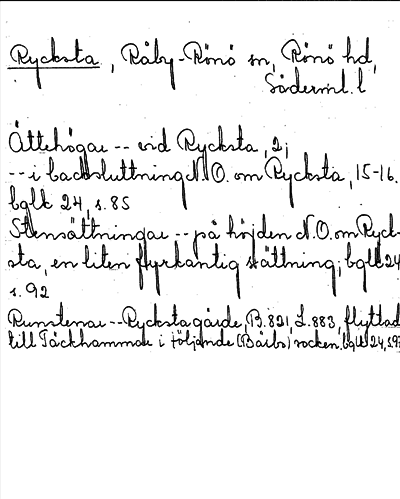 Rycksta, Råby-Rönö sn, Rönö hd,
Söderml. l
Ättehögar -- vid Rycksta, 2;
-- i backsluttning N.O. om Rycksta, 15-16.
bglk 24, s. 85
Stensättningar -- på höjden N.O. om Ryck-
sta, en liten fyrkantig sättning; bglk 24
s. 92
Runstenar -- Rycksta gärde, B. 821, L. 883, flyttad
till Täckhammar i följande (Bärbo) socken, bglk 24, s. 97